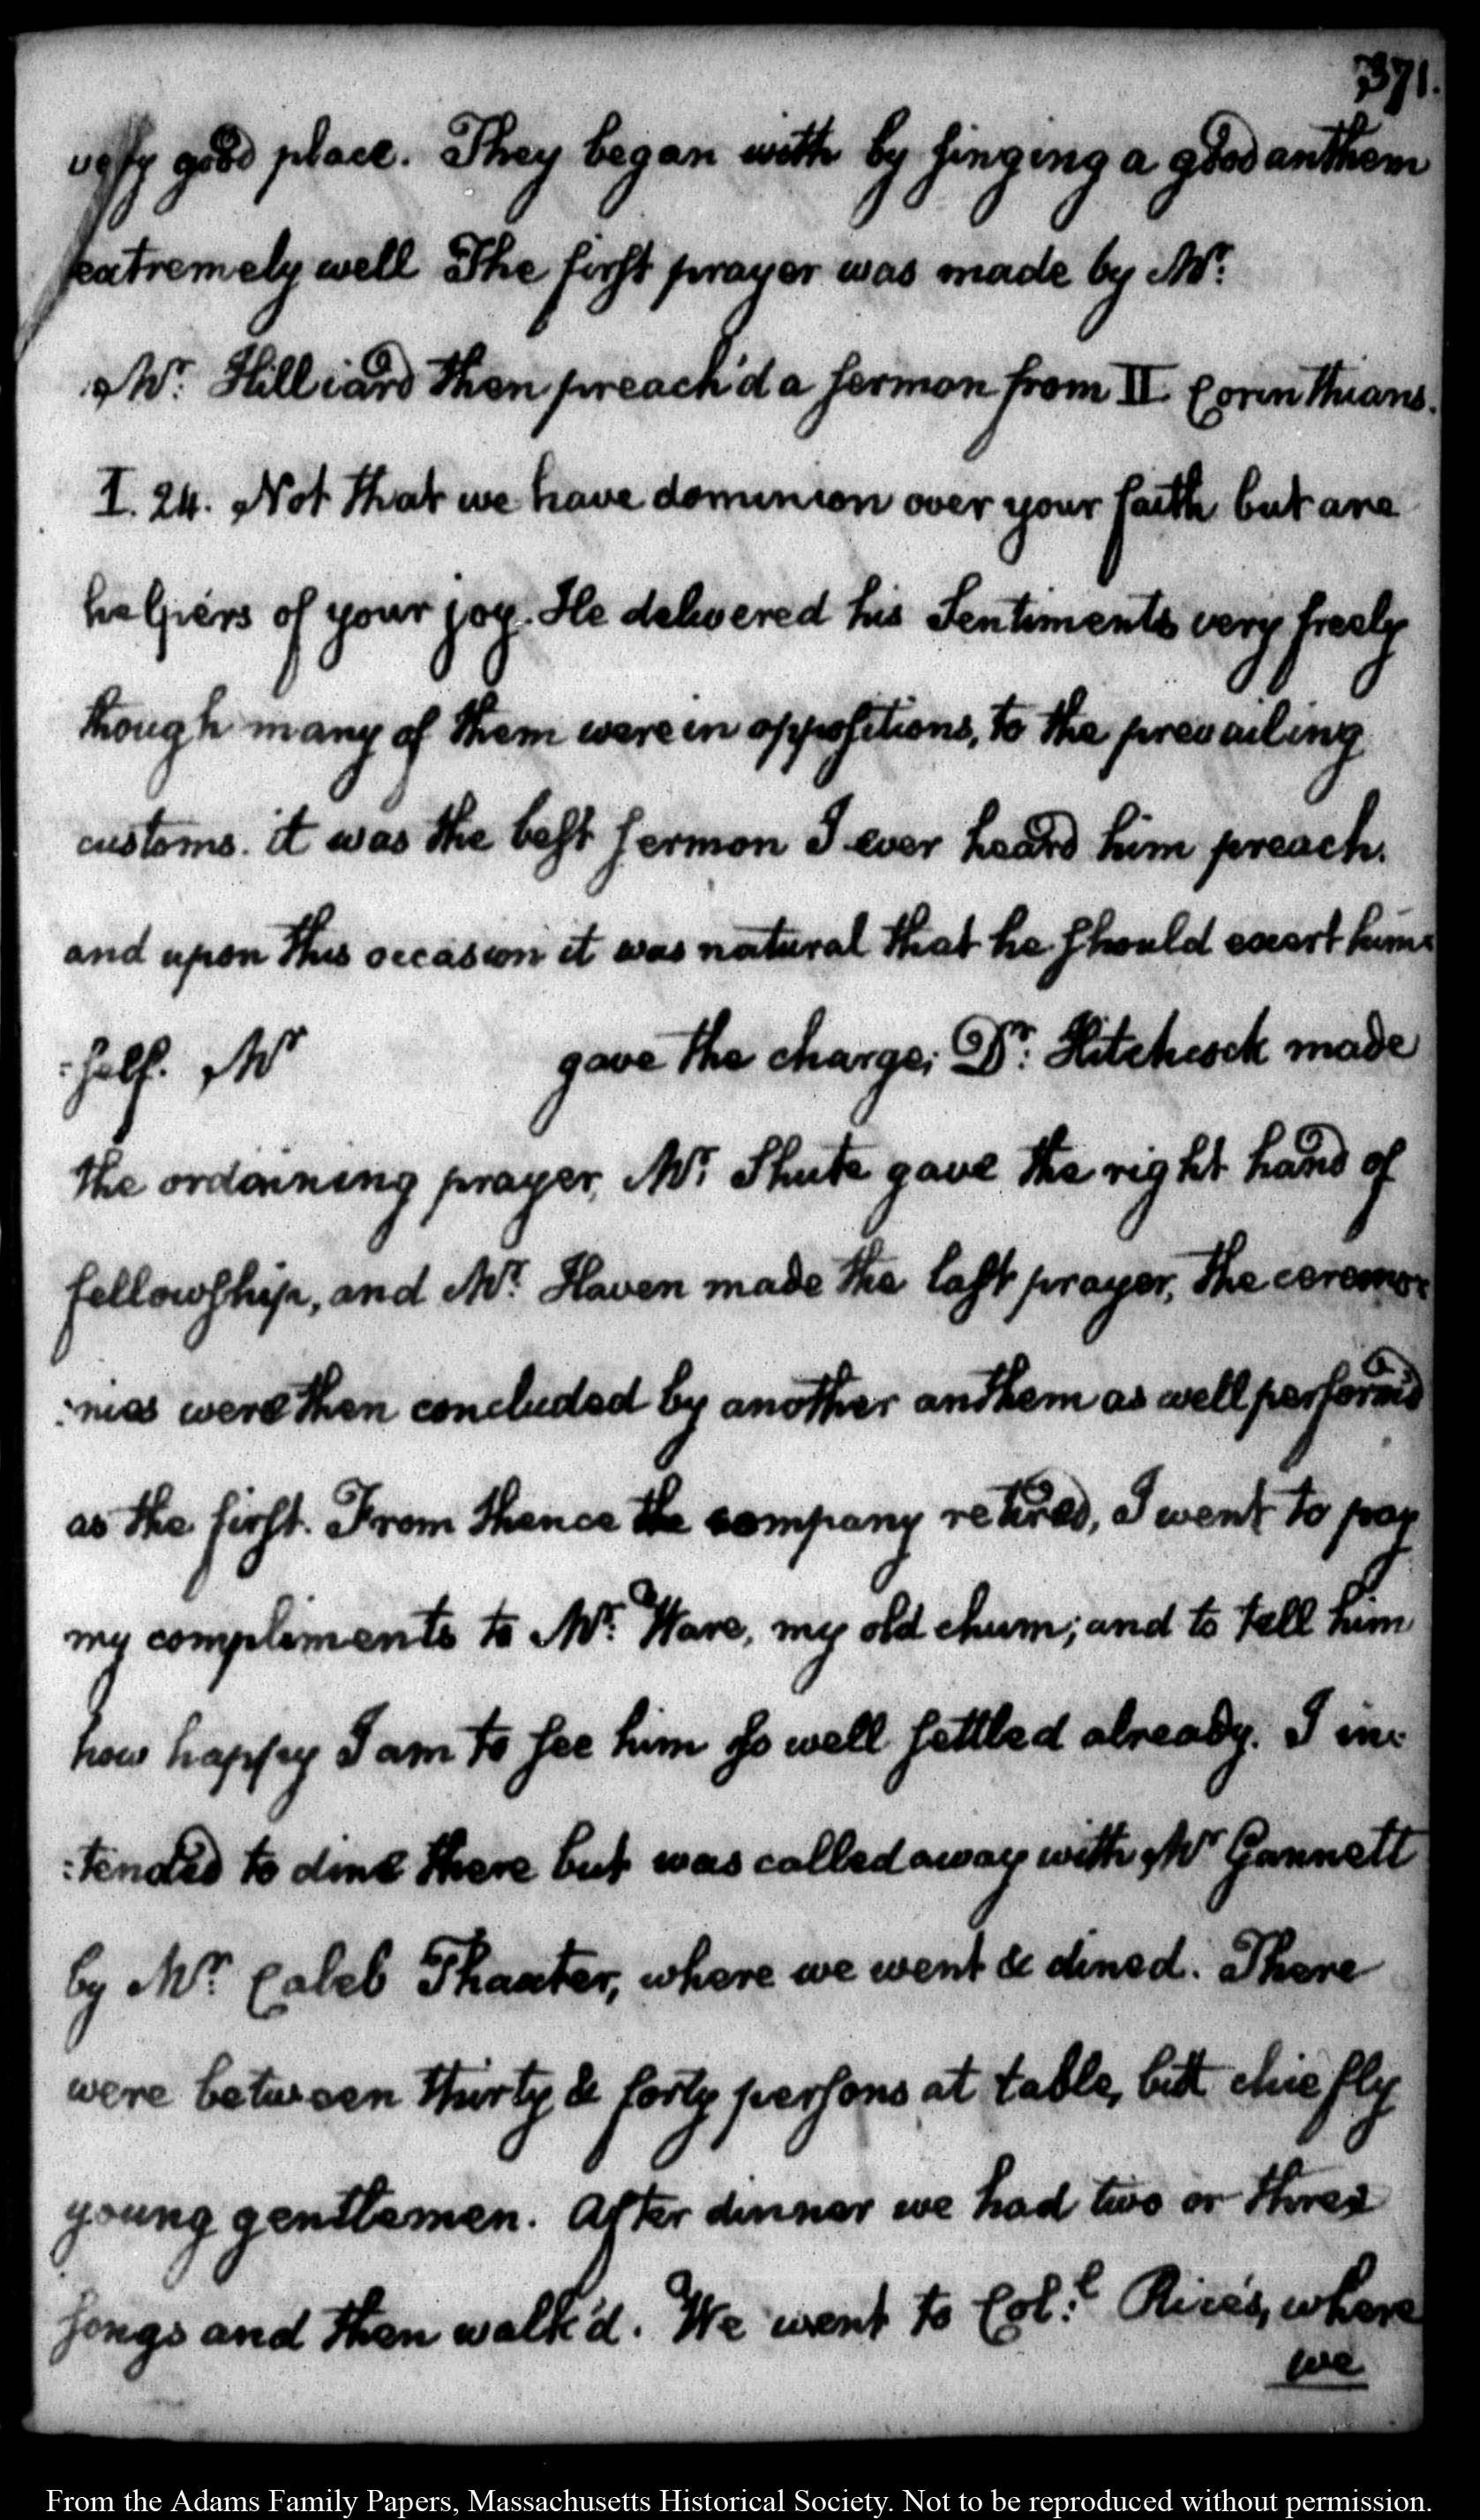 371.
very good place. They began with by singing a good anthem
extremely well The first prayer was made by Mr.
Mr. Hilliard then preach'd a sermon from II Corinthians.
I. 24. Not that we have dominion over your faith but are
helpers of your joy. He delivered his Sentiments very freely
though many of them were in oppositions, to the prevailing
customs. it was the best sermon I ever heard him preach.
and upon this occasion it was natural that he should exert him:
:self. Mr gave the charge; Dr. Hitchcock made
the ordaining prayer, Mr. Shute gave the right hand of
fellowship, and Mr. Haven made the last prayer, The ceremo:
:nies were then concluded by another anthem as well perform'd
as the first. From thence the company retired, I went to pay
my compliments to Mr. Ware, my old chum; and to tell him
how happy I am to see him so well settled already. I in:
:tended to dine there but was called away with Mr Gannett
by Mr. Caleb Thaxter, where we went & dined. There
were between thirty & forty persons at table, but chiefly
young gentlemen. After dinner we had two or three
songs and then walk'd. We went to Col:l Rice's, where
we
From the Adams Family Papers, Massachusetts Historical Society. Not to be reproduced without permission.